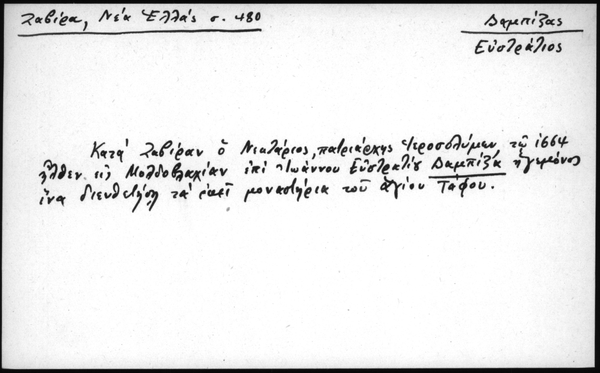 Ζαβίρα, Νέα Ἑλλάς σ. 480
Δαμπίζας
Εὐστράτιος
Κατά Ζαβίραν ὁ Νεκτάριος, πατριάρχης Ἱεροσολύμων, τῷ 1664
ἦλθεν εἰς Μολδοβλαχίαν ἐπί Ἰωάννου Εὐστρατίου Δαμπίζα ἡγεμόνος
ἵνα διευθετήσῃ τά ἐκεῖ μοναστήρια τοῦ ἁγίου Τάφου.